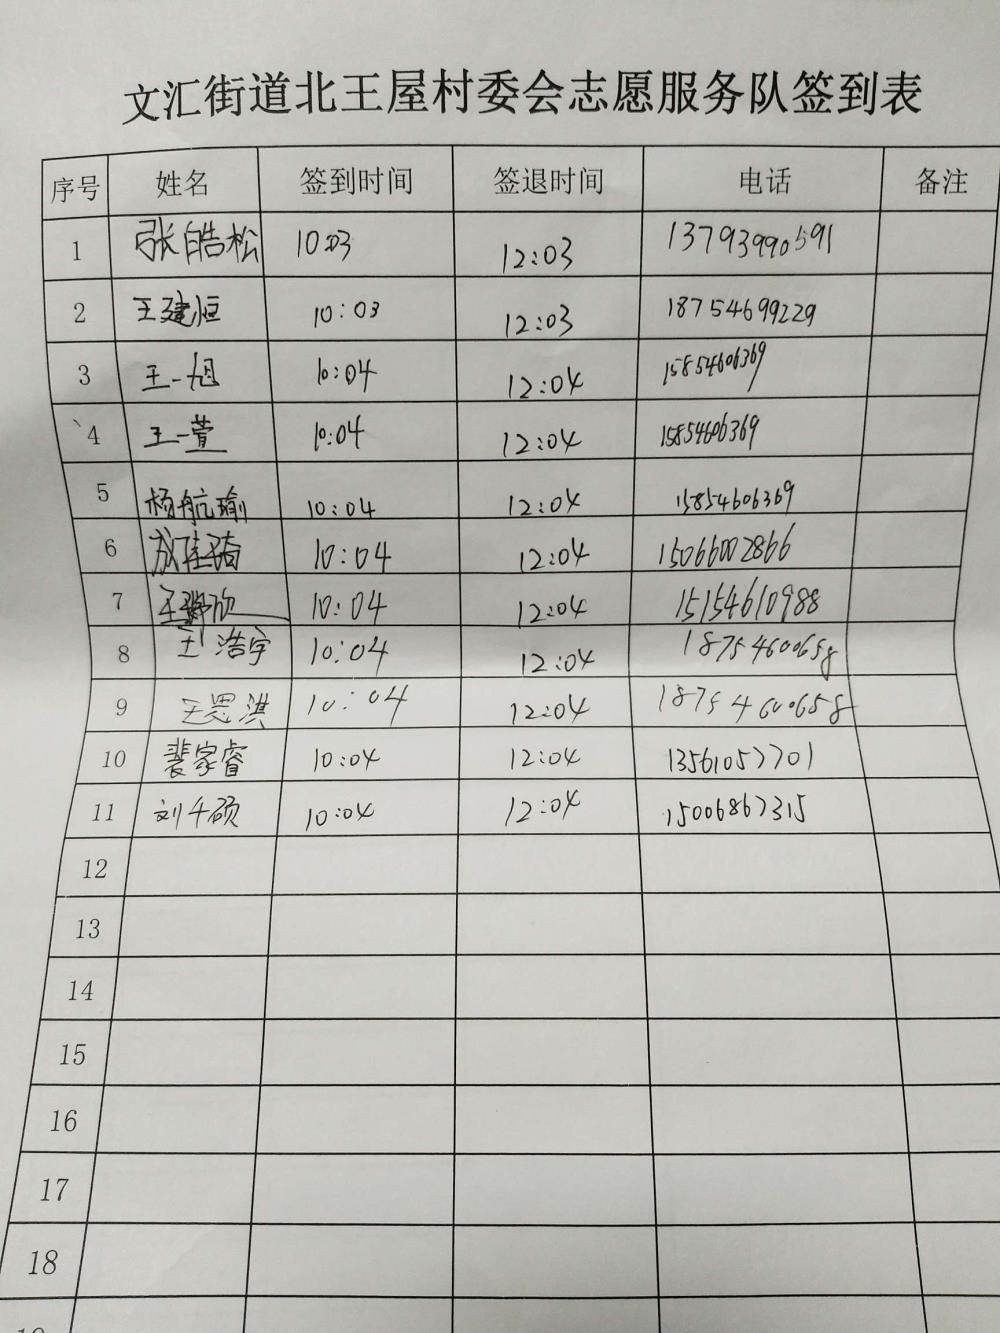 文汇街道北王屋村委会志愿服务队签到表
序号 姓名 签到时间 签退时间 电话 备注
1 张皓松 10:03 12:03 13793990591
2 王建恒 10:03 12:03 18754699229
3 王一旭 10:04 12:04 15854606369
4 王一萱 10:04 12:04 15854606369
5 杨航瑜 10:04 12:04 15854606369
6 10:04 12:04 15066002866
7 10:04 12:04 15154610988
8 王浩宇 10:04 12:04 18754600658
9 王恩淇 10:04 12:04 18754600658
10 裴家睿 10:04 12:04 13561057701
11 刘千硕 10:04 12:04 15006867315
12
13
14
15
16
17
18